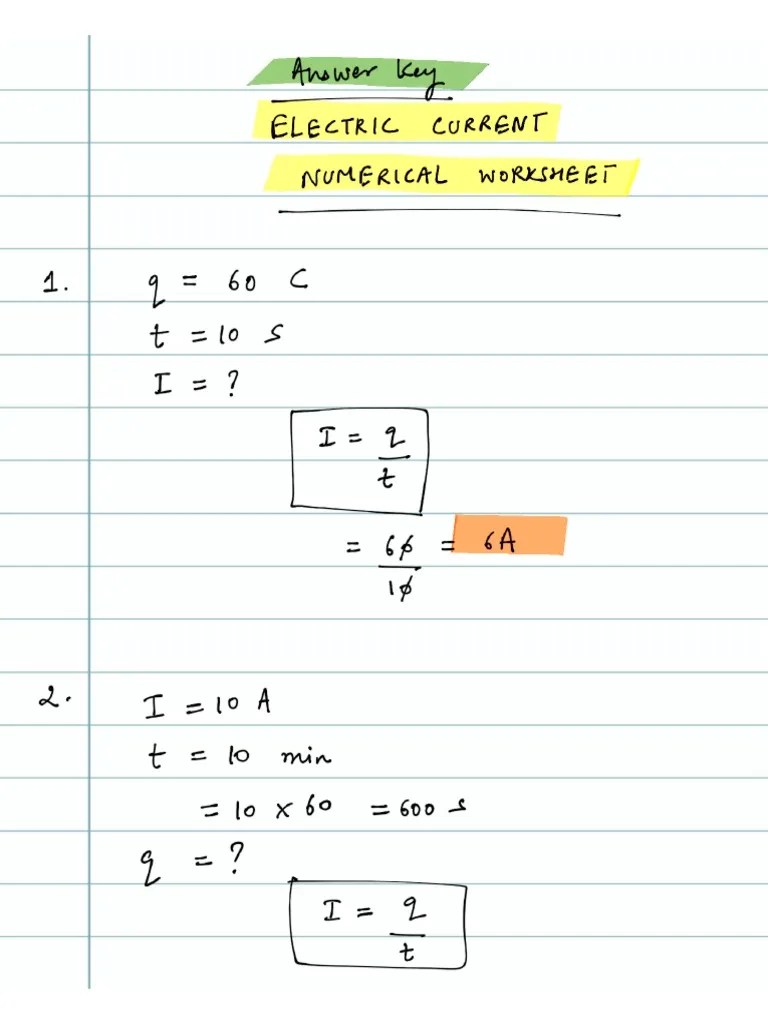 Answer Key
ELECTRIC CURRENT
NUMERICAL WORKSHEET
1. q = 60 C
t = 10 s
I = ?
I = q/t
= 60/10 = 6A
2. I = 10 A
t = 10 min
= 10 x 60 = 600 s
q = ?
I = q/t